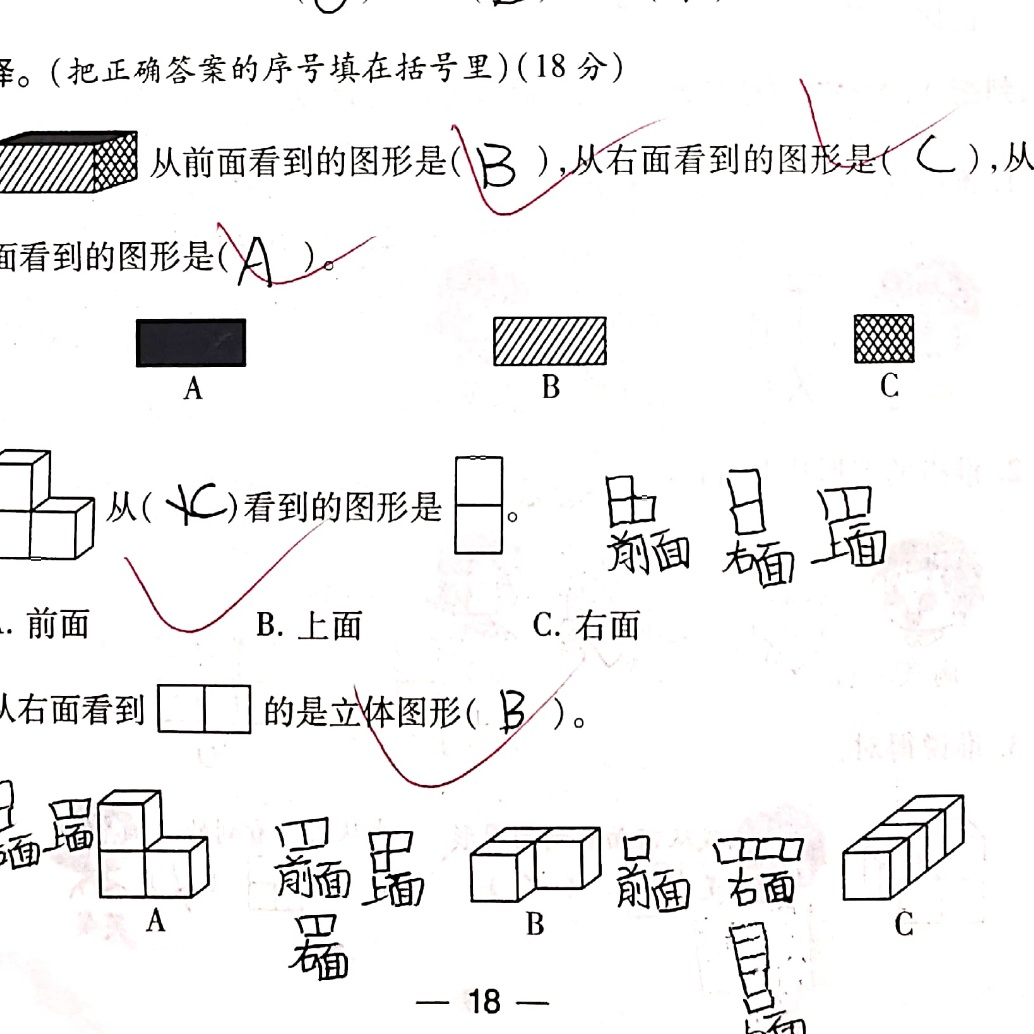 择。(把正确答案的序号填在括号里)(18分)
从前面看到的图形是( B ),从右面看到的图形是( C ),从
面看到的图形是( A )。
A B C
从( C )看到的图形是 。
前面 右面 上面
A. 前面 B. 上面 C. 右面
从右面看到 的是立体图形( B )。
右面 上面 前面 上面 前面 右面
A B C
右面
— 18 —
上面